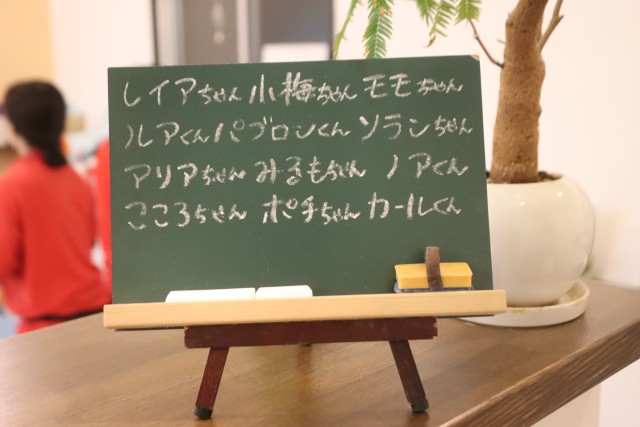 レイアちゃん 小梅ちゃん モモちゃん
ルアくん パブロンくん ソランちゃん
アリアちゃん みるもちゃん ノアくん
こころちゃん ポチちゃん カールくん